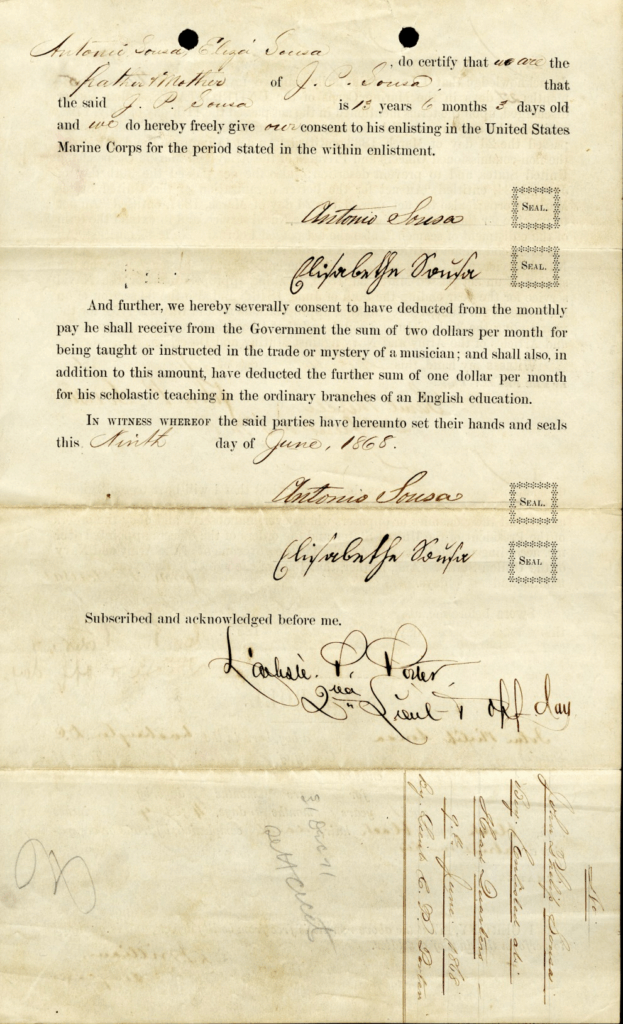 Antonio Sousa, Eliza Sousa, do certify that we are the
Father & Mother of J. P. Sousa, that
the said J. P. Sousa is 13 years 6 months 3 days old
and we do hereby freely give our consent to his enlisting in the United States
Marine Corps for the period stated in the within enlistment.
Antonio Sousa
SEAL.
Elisabethe Sousa
SEAL.
And further, we hereby severally consent to have deducted from the monthly
pay he shall receive from the Government the sum of two dollars per month for
being taught or instructed in the trade or mystery of a musician; and shall also, in
addition to this amount, have deducted the further sum of one dollar per month
for his scholastic teaching in the ordinary branches of an English education.
IN WITNESS WHEREOF the said parties have hereunto set their hands and seals
this Ninth day of June, 1868.
Antonio Sousa
SEAL.
Elisabethe Sousa
SEAL
Subscribed and acknowledged before me.
P. Porter
2nd Lieut & Off Day
No.
John Philip Sousa
Boy. Enlisted at
Head Quarters
9th June 1868
By Lieut C. P. Porter
31 Dec 71